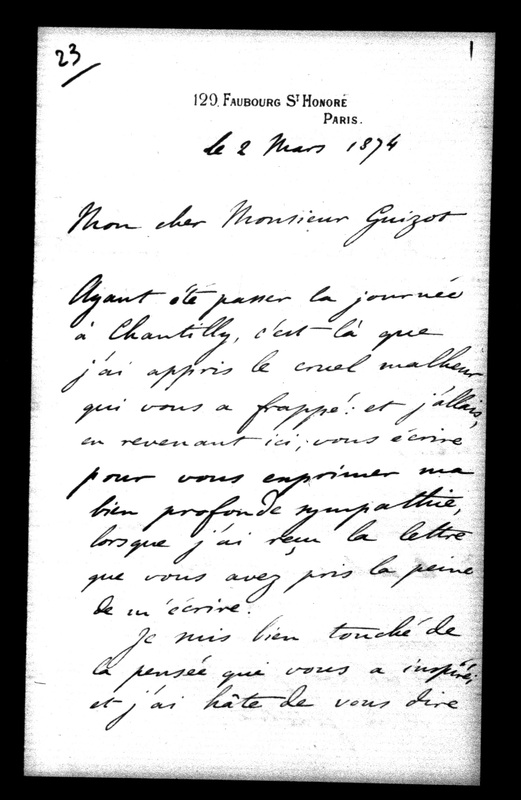 23
1
129, FAUBOURG ST HONORÉ
PARIS.
le 2 Mars 1874
Mon cher Monsieur Guizot
Ayant été passer la journée
à Chantilly, c'est là que
j'ai appris le cruel malheur
qui vous a frappé: et j'allais,
en revenant ici, vous écrire
pour vous exprimer ma
bien profonde sympathie,
lorsque j'ai reçu la lettre
que vous avez pris la peine
de m'écrire.
Je suis bien touché de
la pensée qui vous a inspiré,
et j'ai hâte de vous dire